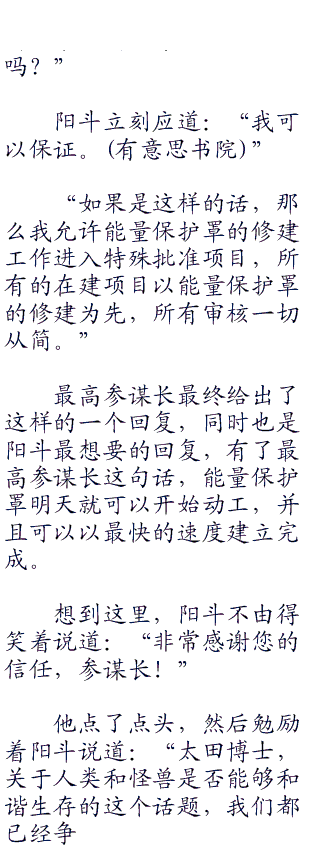 吗？”
阳斗立刻应道：“我可
以保证。(有意思书院)”
“如果是这样的话，那
么我允许能量保护罩的修建
工作进入特殊批准项目，所
有的在建项目以能量保护罩
的修建为先，所有审核一切
从简。”
最高参谋长最终给出了
这样的一个回复，同时也是
阳斗最想要的回复，有了最
高参谋长这句话，能量保护
罩明天就可以开始动工，并
且可以以最快的速度建立完
成。
想到这里，阳斗不由得
笑着说道：“非常感谢您的
信任，参谋长！”
他点了点头，然后勉励
着阳斗说道：“太田博士，
关于人类和怪兽是否能够和
谐生存的这个话题，我们都
已经争